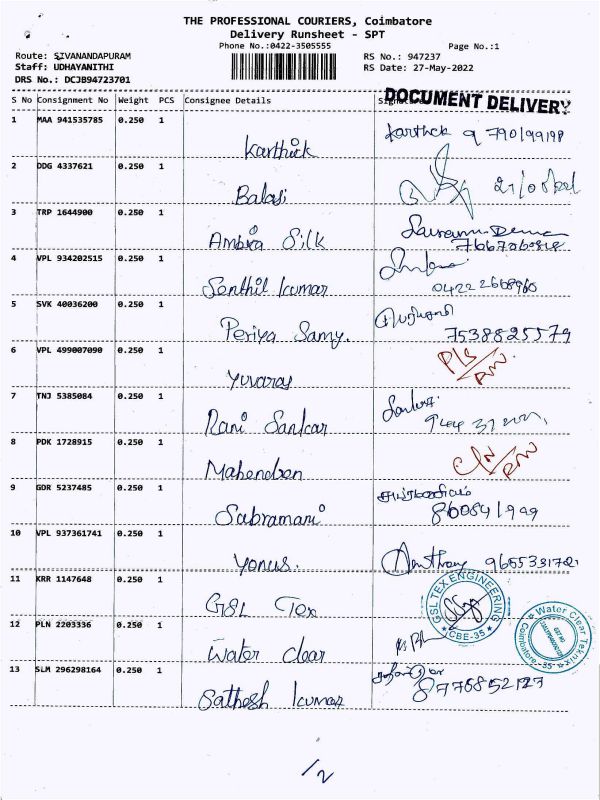 THE PROFESSIONAL COURIERS, Coimbatore
Delivery Runsheet - SPT
Phone No.:0422-3505555
Page No.:1
Route: SIVANANDAPURAM
RS No.: 947237
Staff: UDHAYANITHI
RS Date: 27-May-2022
DRS No.: DCJB94723701
DOCUMENT DELIVERY
S No Consignment No Weight PCS Consignee Details
1 MAA 941535785 0.250 1
Karthick
2 DDG 4337621 0.250 1
Balaji
3 TRP 1644900 0.250 1
Ambika Silk
4 VPL 934202515 0.250 1
Senthil kumar
5 SVK 40036200 0.250 1
Periya Samy. 7538825579
6 VPL 499007090 0.250 1
Yuvaraj
7 TNJ 5385084 0.250 1
Rani Sankar
8 PDK 1728915 0.250 1
Mahendren
9 GDR 5237485 0.250 1
Subramani
10 VPL 937361741 0.250 1
Yonus.
11 KRR 1147648 0.250 1
GSL Tex
GSL TEX ENGINEERING
CBE-35
12 PLN 2203336 0.250 1
Water clear
Water Clear Teknix
Coimbatore-35
13 SLM 296298164 0.250 1
Sathesh kumar
1/2